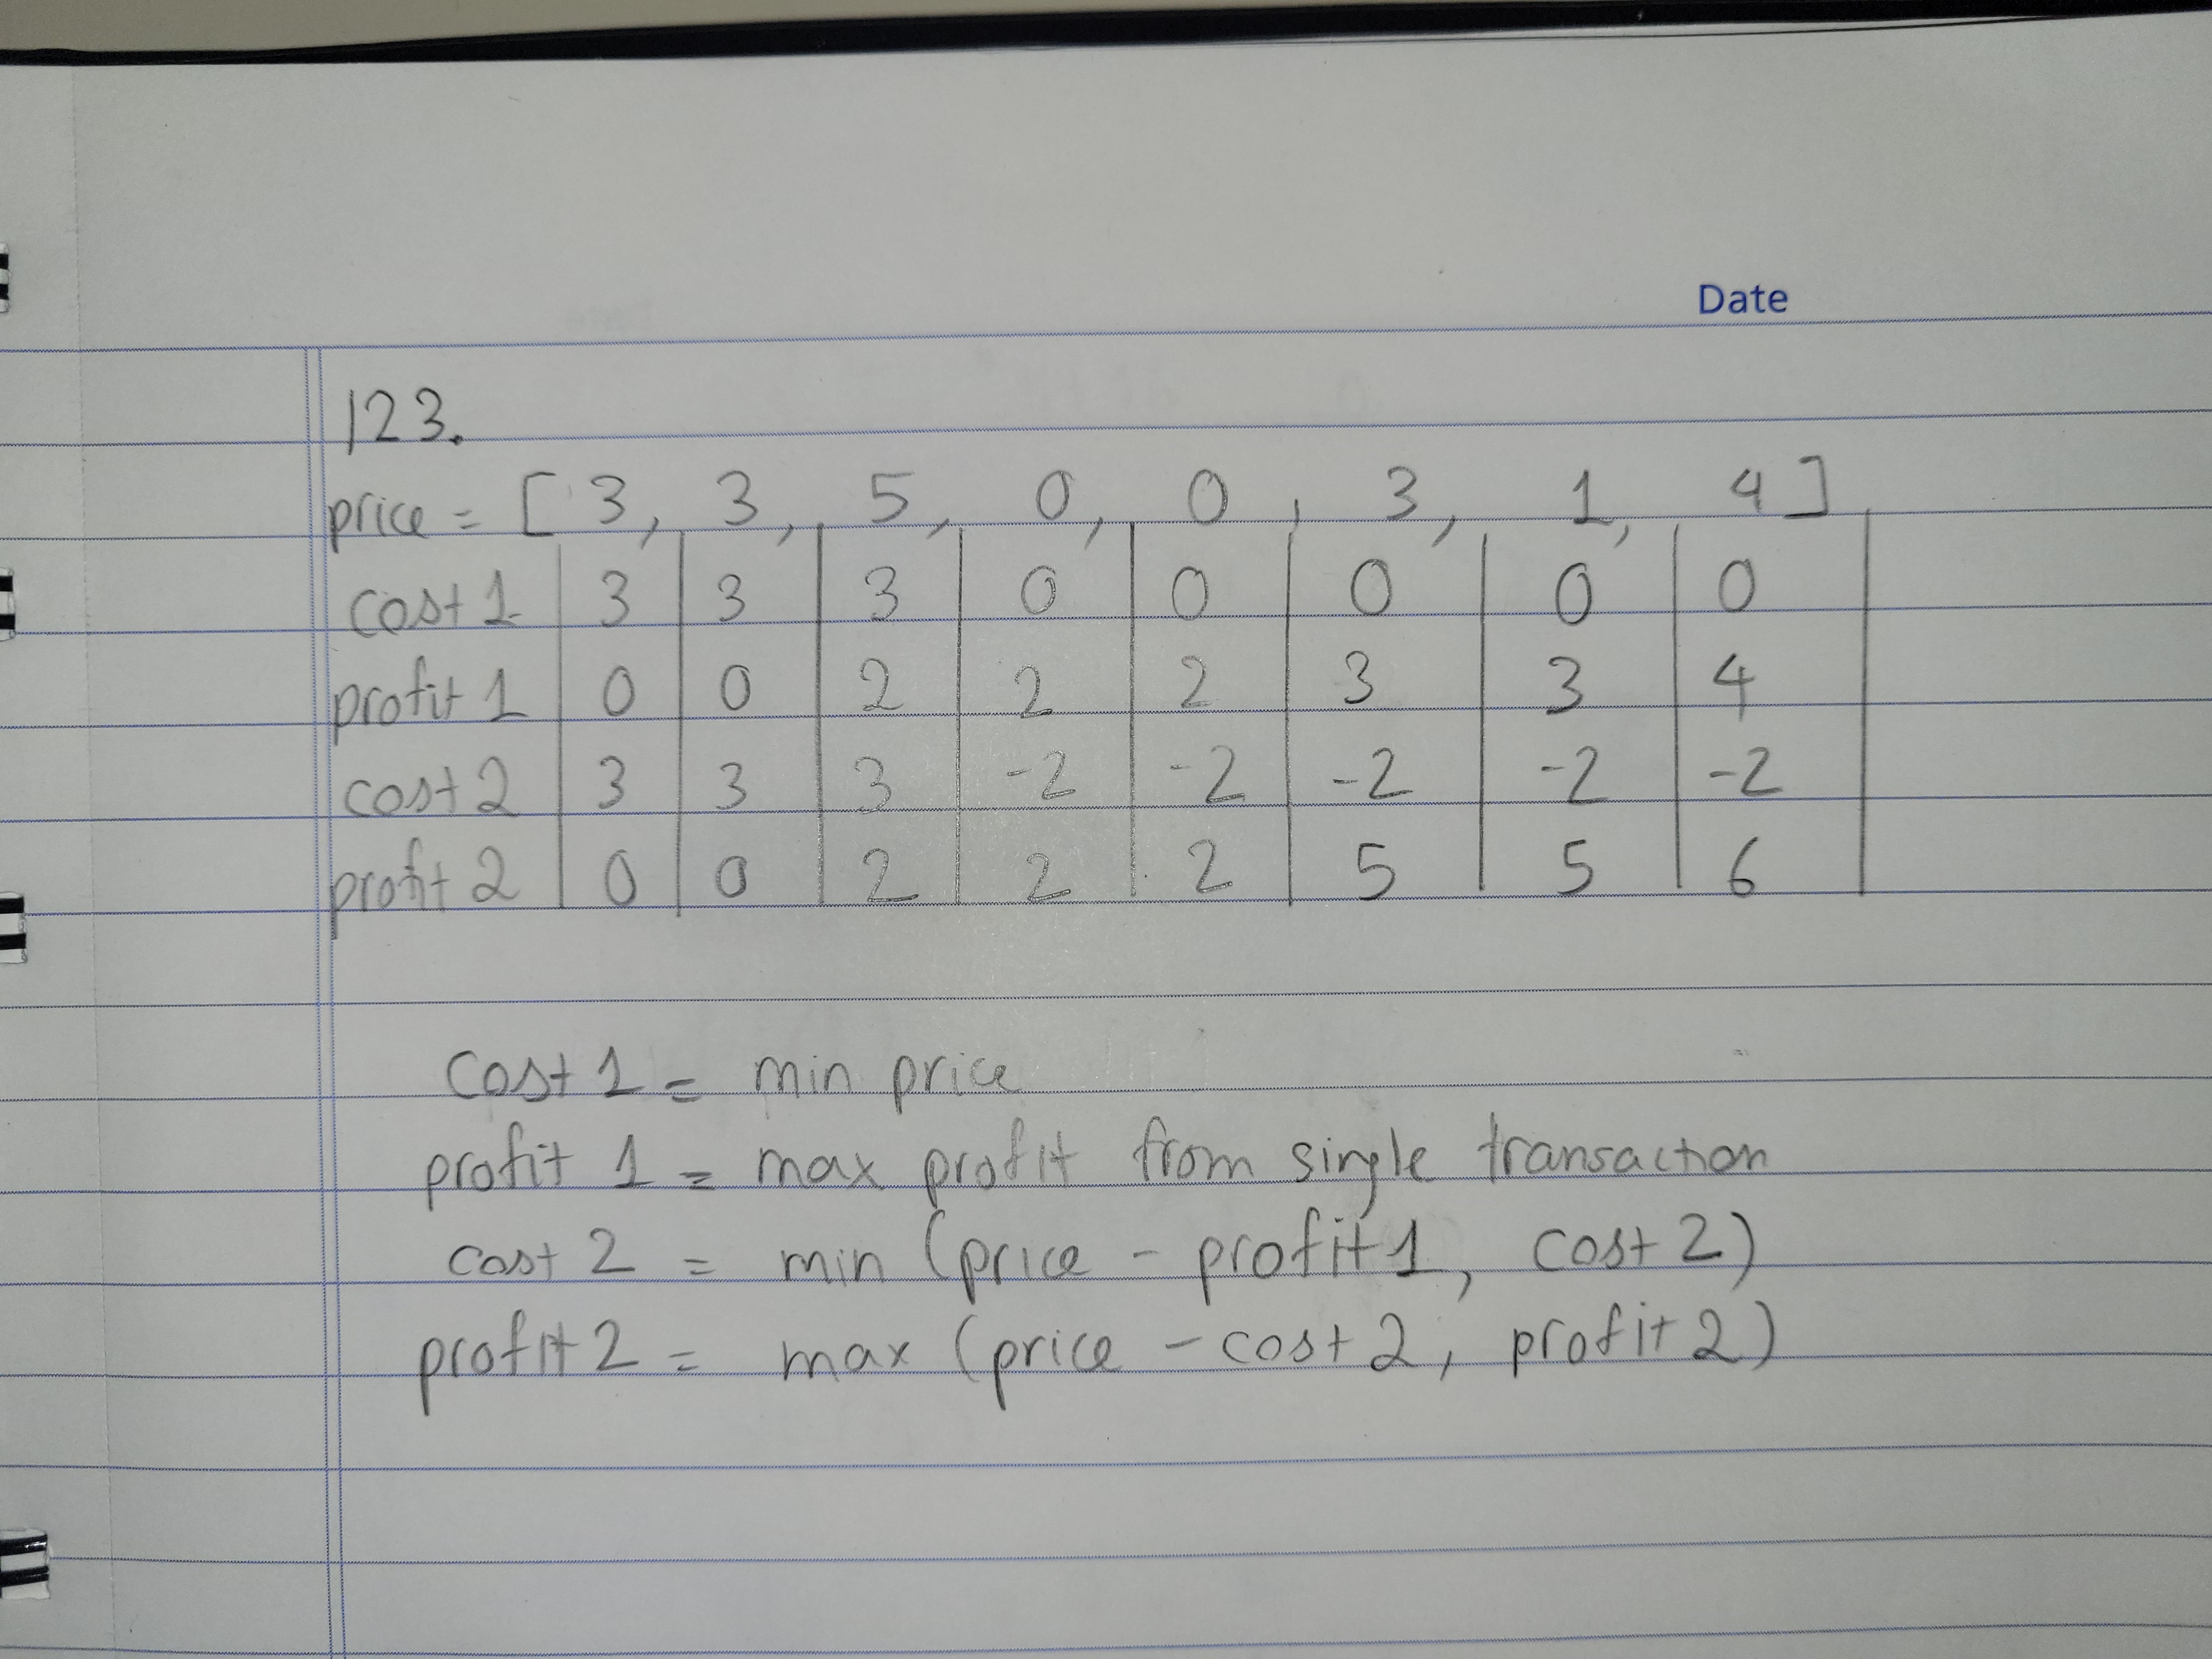 Date
123.
price = [3, 3, 5, 0, 0, 3, 1, 4]
cost 1 3 3 3 0 0 0 0 0
profit 1 0 0 2 2 2 3 3 4
cost 2 3 3 3 -2 -2 -2 -2 -2
profit 2 0 0 2 2 2 5 5 6
Cost 1 = min price
profit 1 = max profit from single transaction
cost 2 = min (price - profit 1, cost 2)
profit 2 = max (price - cost 2, profit 2)